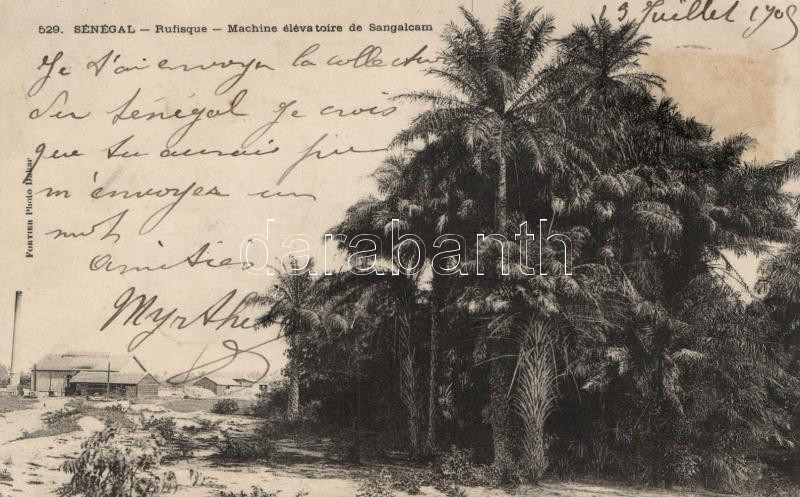 529. SÉNÉGAL — Rufisque — Machine élévatoire de Sangalcam
13 Juillet 190
Je t'ai envoyer la collection
du Sénégal Je crois
que tu aurais pu
m'envoyer un
mot
Amitiés
Myrthe
FORTIER Photo Dakar
darabanth